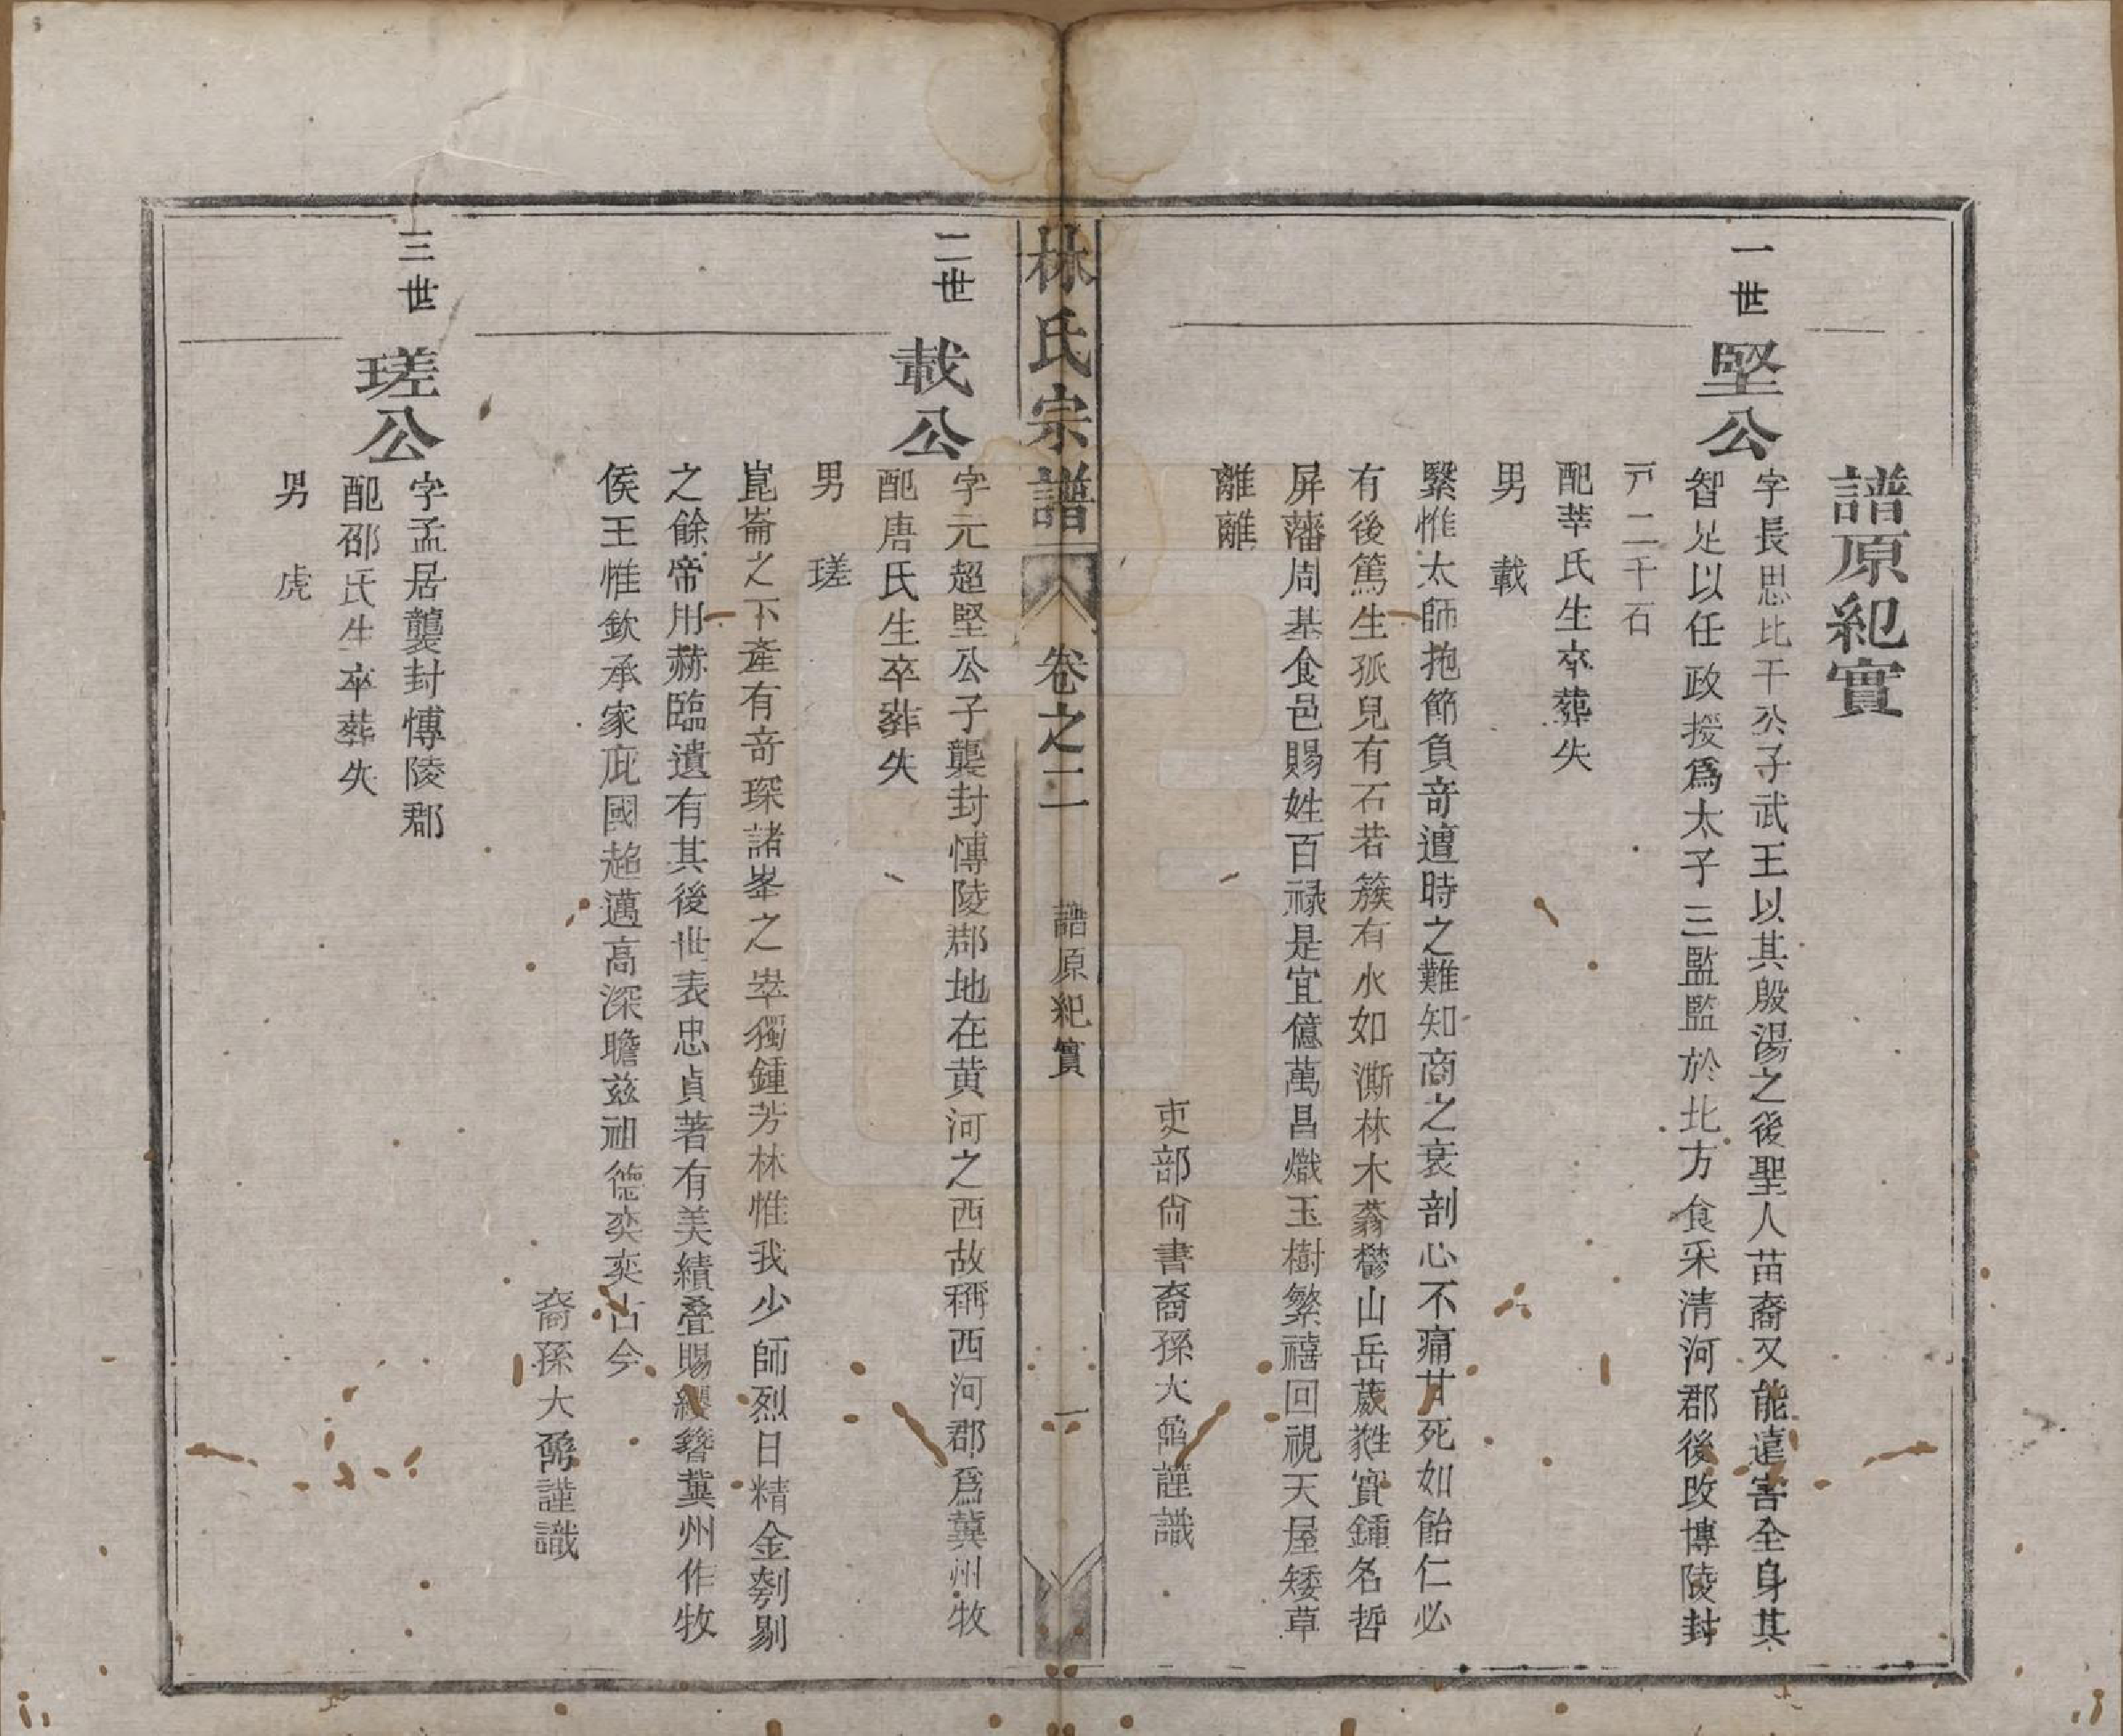 譜原紀實
一世
堅公
字長思比干公子武王以其殷湯之後聖人苗裔又能遠害全身其
智足以任政授爲太子三監監於北方食采清河郡後改博陵封
戸二千石
配莘氏生卒葬失
男 載
繄惟太師抱節負竒邅時之難知商之衰剖心不痛甘死如飴仁必
有後篤生孤兒有石若簇有水如澌林木蓊鬱山岳葳甤實鍾名哲
屏藩周基食邑賜姓百禄是宜億萬昌熾玉樹繁禧回視天屋矮草
離離
吏部尙書裔孫大 謹識
林氏宗譜
卷之二
譜原紀實
一
二世
載公
字元超堅公子襲封愽陵郡地在黄河之西故稱西河郡爲冀州牧
配唐氏生卒葬失
男 瑳
崑崙之下產有竒琛諸峯之崒獨鍾芳林惟我少師烈日精金刳剔
之餘帝用赫臨遺有其後世表忠貞著有美績叠賜纓簪冀州作牧
侯王惟欽承家庇國超邁高深瞻兹祖德奕奕古今
裔孫大 謹識
三世
瑳公
字孟居襲封愽陵郡
配邵氏生卒葬失
男 虎